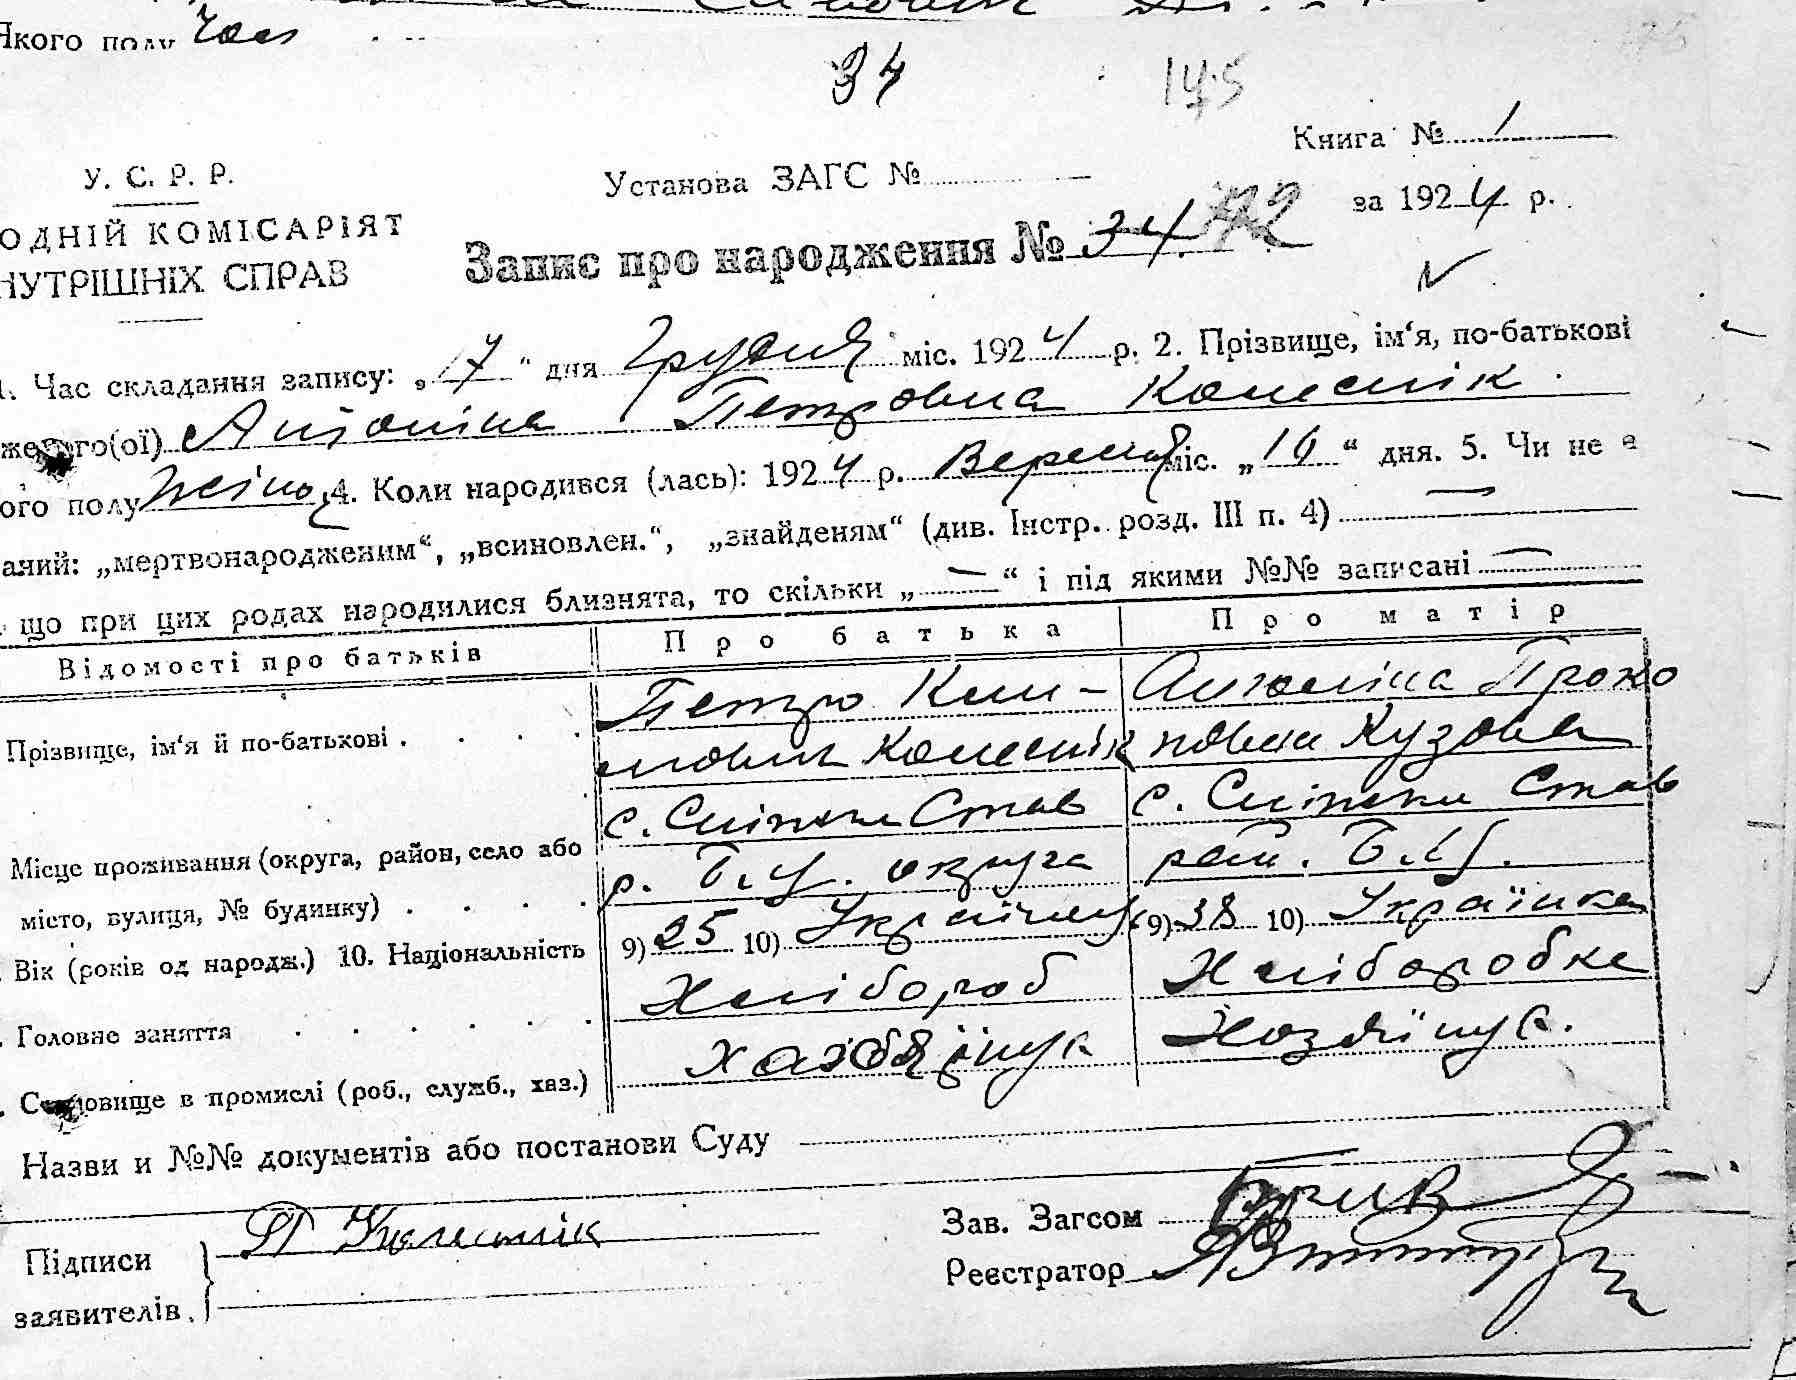 Якого полу Чол
34 145
Книга № 1
У. С. Р. Р. Установа ЗАГС №
за 1924 р.
ОДНІЙ КОМІСАРІЯТ
НУТРІШНІХ СПРАВ
Запис про народження № 34
1. Час складання запису: „17“ дня Грудня міс. 1924 р. 2. Прізвище, ім‘я, по-батькові
женого(ої) Антоніна Петровна Колеснік.
ого полу жіноч. 4. Коли народився (лась): 1924 р. Вересня міс. „16“ дня. 5. Чи не є
аний: „мертвонародженим“, „всиновлен.“, „знайденям“ (див. Інстр. розд. III п. 4) —
що при цих родах народилися близнята, то скільки „—“ і під якими №№ записані —
Відомості про батьків Про батька Про матір
Прізвище, ім‘я й по-батькові Петро Клим- Ангеліна Проко
ович Колеснік повна Кузова
Місце проживання (округа, район, село або с. Сніжки Став с. Сніжки Став
місто, вулиця, № будинку) р. Б.Ц. округа рай. Б.Ц.
Вік (років од народж.) 10. Національність 9) 25 10) Українец 9) 38 10) Українка
Головне заняття Хлібороб Хліборобка
Становище в промислі (роб., служб., хаз.) хазяїнує Хозяїнує.
Назви и №№ документів або постанови Суду —
Підписи П Колеснік Зав. Загсом
заявителів. Реєстратор